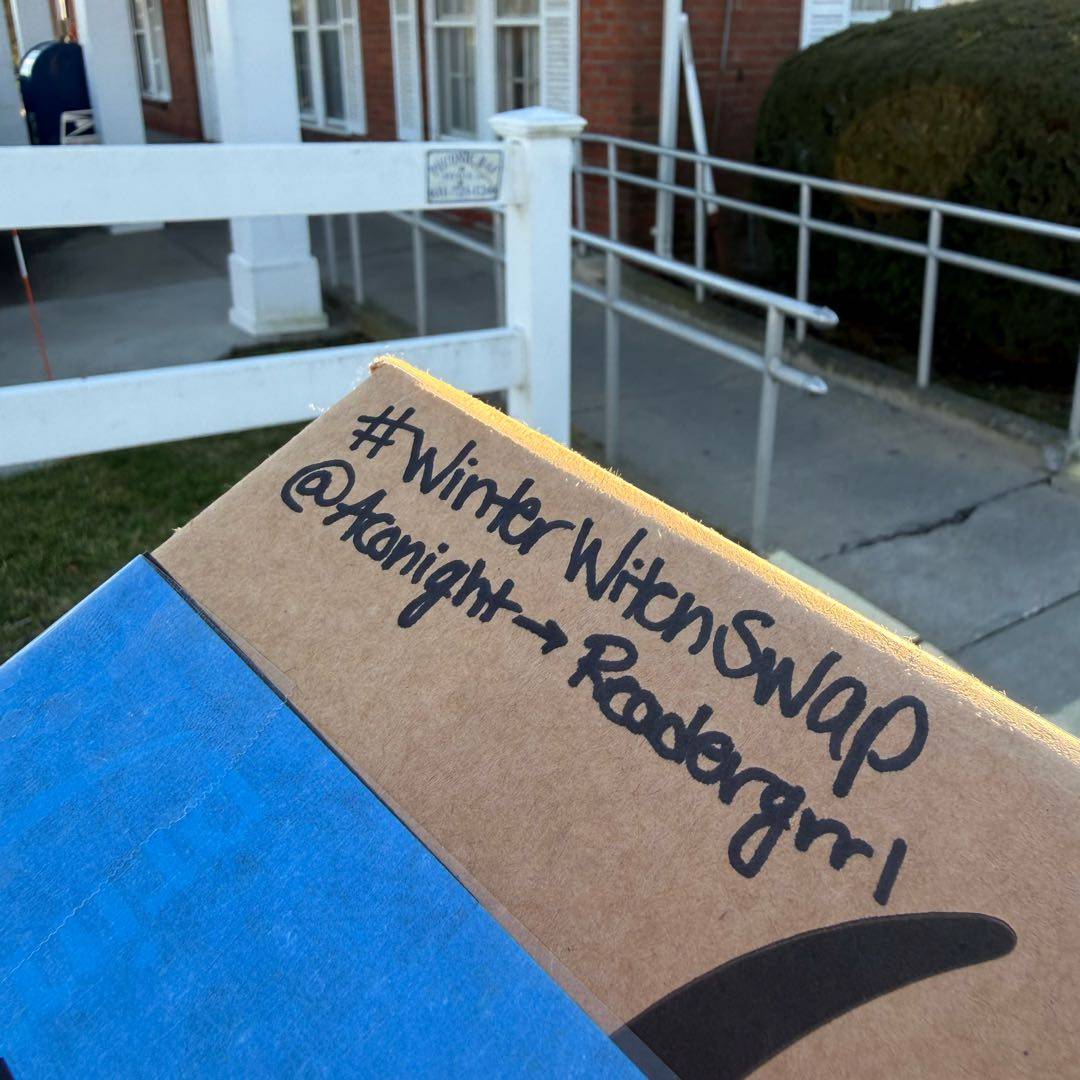 #WinterWitchSwap
@Aconight → Readergrrl